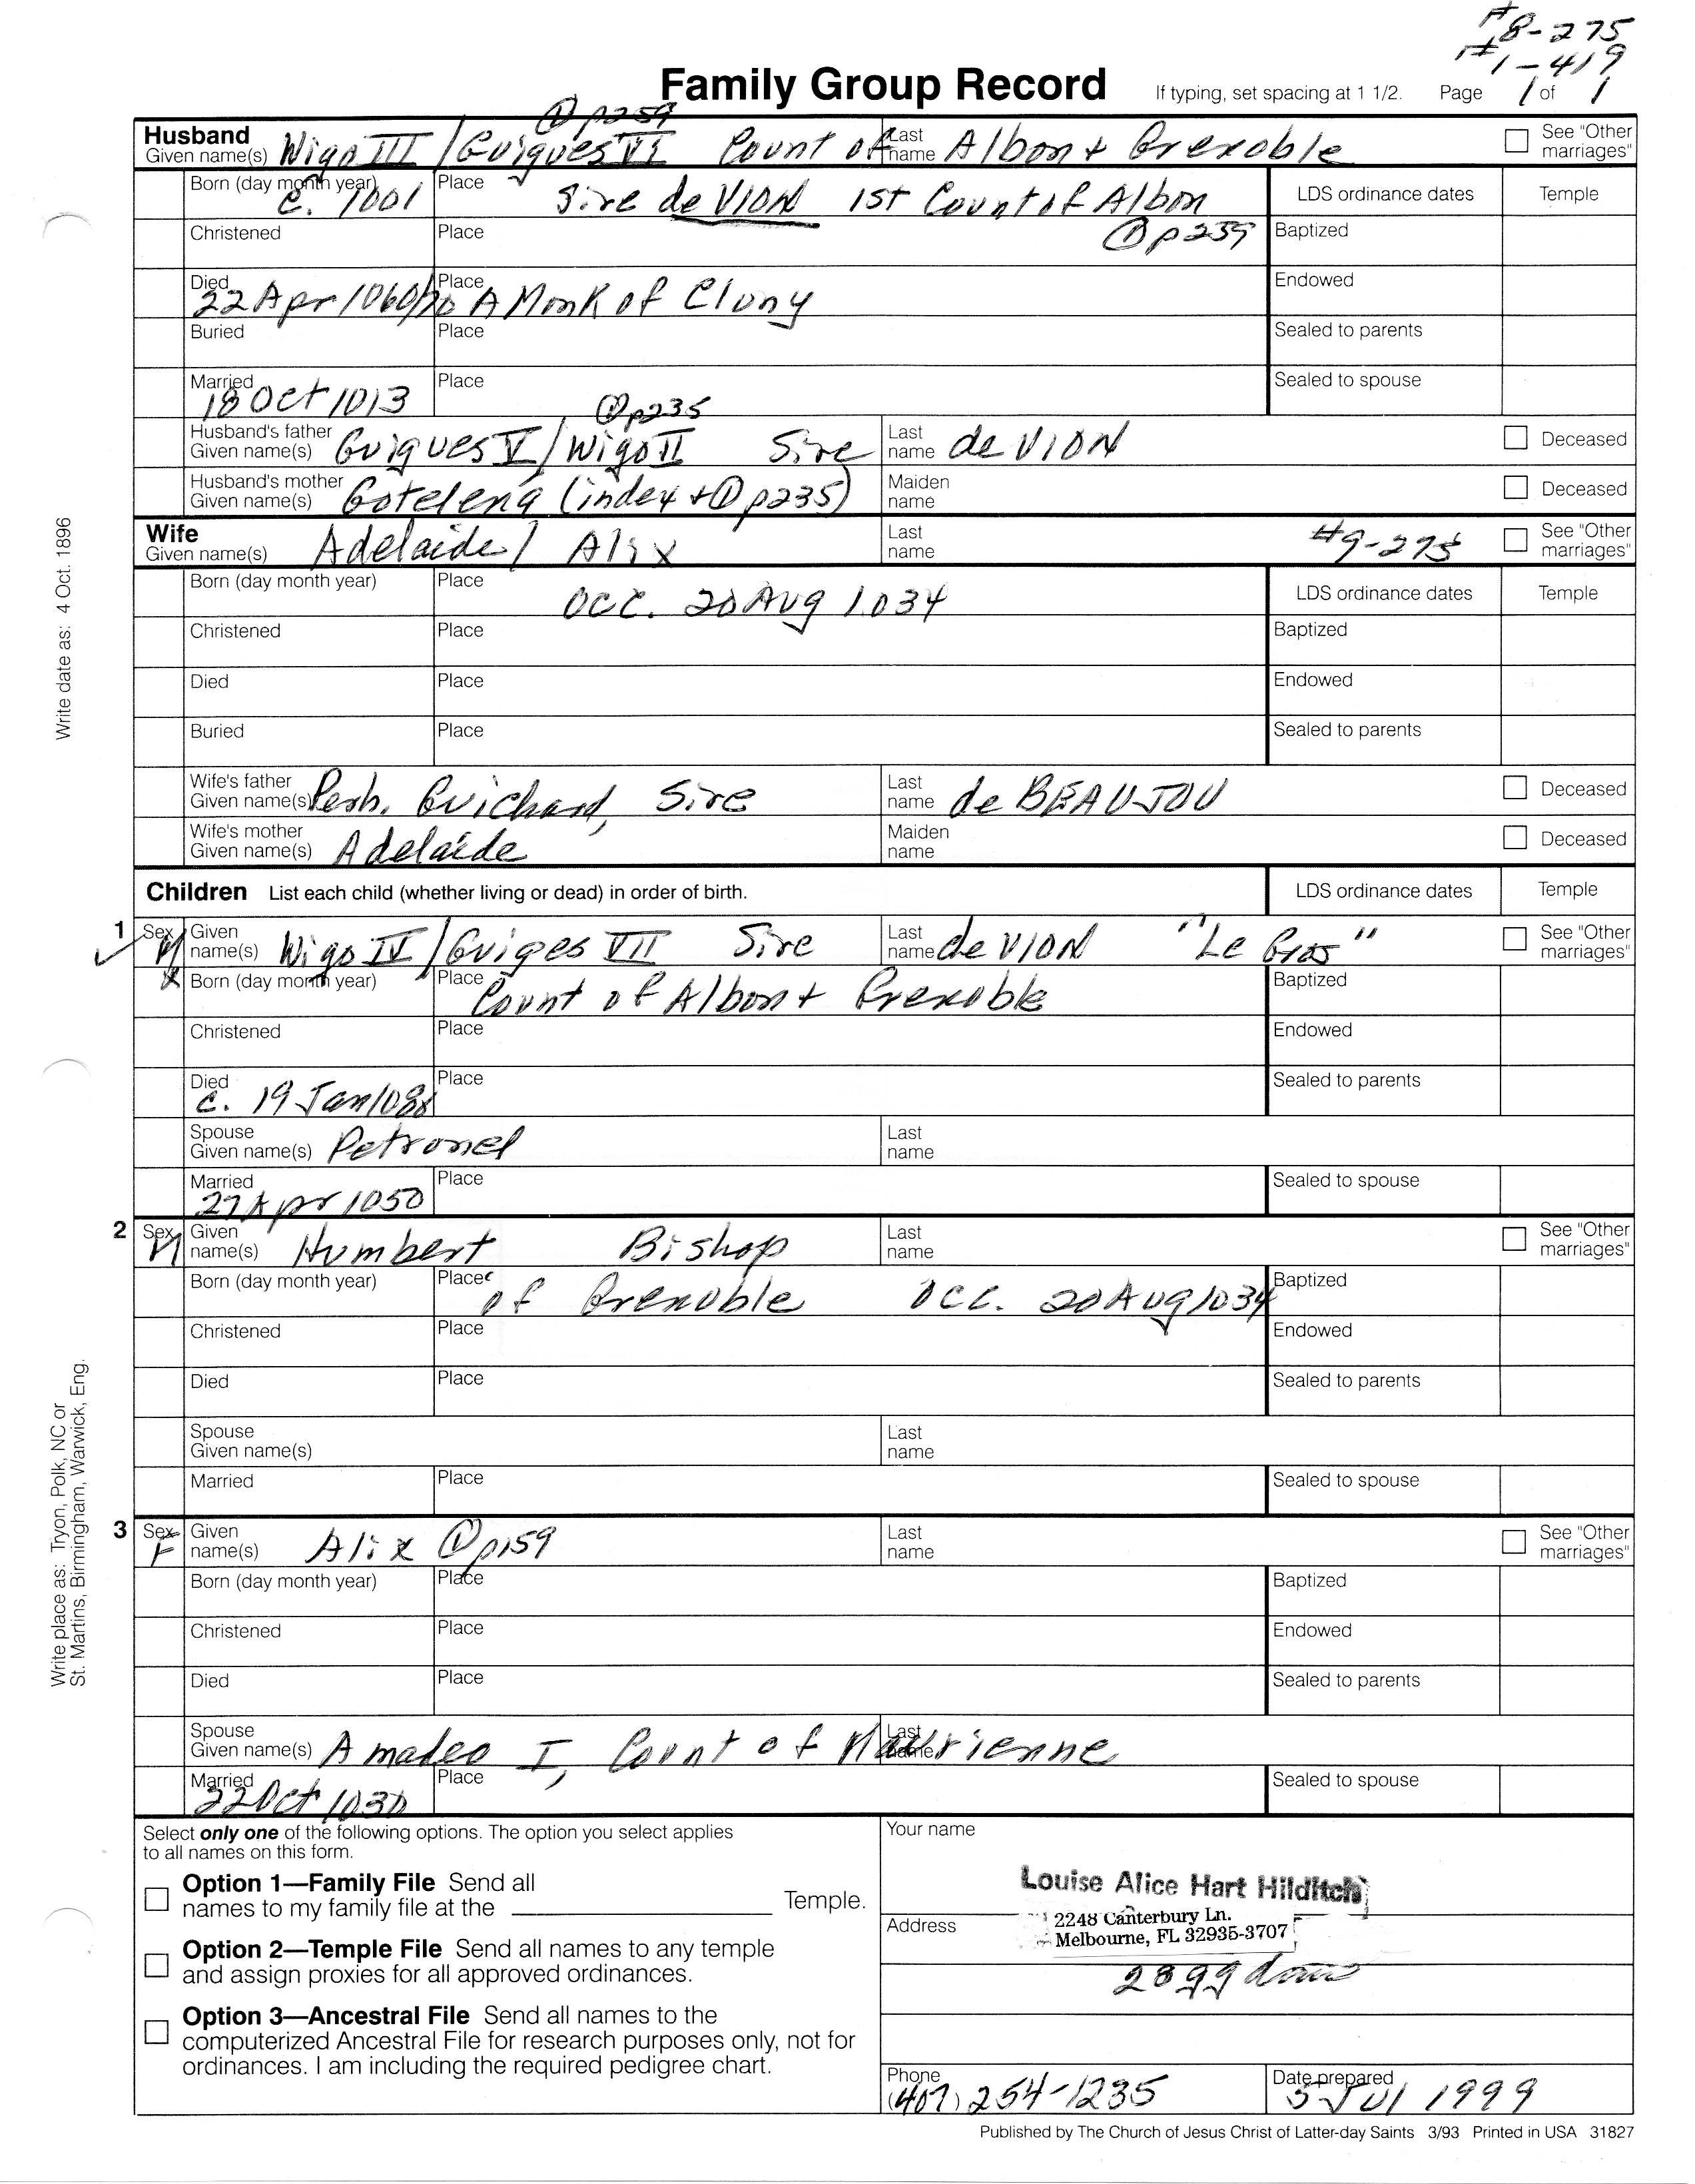 #8-275
#1-419
Family Group Record If typing, set spacing at 1 1/2. Page 1 of 1
① p259
Husband
Given name(s) Wigo III / Guigues VI Count of Last name Albon + Grenoble See "Other marriages"
Born (day month year) c. 1001 Place Sire de VION 1st Count of Albon LDS ordinance dates Temple
Christened Place ① p239 Baptized
Died 22 Apr 1060/70 Place A Monk of Cluny Endowed
Buried Place Sealed to parents
Married 18 Oct 1013 Place Sealed to spouse
① p235
Husband's father Given name(s) Guigues V / Wigo II Sire Last name de VION Deceased
Husband's mother Given name(s) Gotelena (index + ① p235) Maiden name Deceased
Wife
Given name(s) Adelaide / Alix Last name #9-275 See "Other marriages"
Born (day month year) Place occ. 20 Aug 1034 LDS ordinance dates Temple
Christened Place Baptized
Died Place Endowed
Buried Place Sealed to parents
Wife's father Given name(s) Perh. Guichard, Sire Last name de BEAUJOU Deceased
Wife's mother Given name(s) Adelaide Maiden name Deceased
Children List each child (whether living or dead) in order of birth. LDS ordinance dates Temple
1 Sex M Given name(s) Wigo IV / Guiges VII Sire Last name de VION "Le Gros" See "Other marriages"
X Born (day month year) Place Count of Albon + Grenoble Baptized
Christened Place Endowed
Died c. 19 Jan 1080 Place Sealed to parents
Spouse Given name(s) Petronel Last name
Married 27 Apr 1050 Place Sealed to spouse
2 Sex M Given name(s) Humbert Bishop Last name See "Other marriages"
Born (day month year) Place of Grenoble occ. 20 Aug 1034 Baptized
Christened Place Endowed
Died Place Sealed to parents
Spouse Given name(s) Last name
Married Place Sealed to spouse
3 Sex F Given name(s) Alix ① p159 Last name See "Other marriages"
Born (day month year) Place Baptized
Christened Place Endowed
Died Place Sealed to parents
Spouse Given name(s) Amadeo I, Count of Maurienne Last name
Married 22 Oct 1030 Place Sealed to spouse
Select only one of the following options. The option you select applies
to all names on this form.
Option 1—Family File Send all
names to my family file at the Temple.
Option 2—Temple File Send all names to any temple
and assign proxies for all approved ordinances.
Option 3—Ancestral File Send all names to the
computerized Ancestral File for research purposes only, not for
ordinances. I am including the required pedigree chart.
Your name
Louise Alice Hart Hilditch
Address
2248 Canterbury Ln.
Melbourne, FL 32935-3707
28 gg
Phone (407) 254-1235 Date prepared 5 Jul 1999
Published by The Church of Jesus Christ of Latter-day Saints 3/93 Printed in USA 31827
Write date as: 4 Oct. 1896
Write place as: Tryon, Polk, NC or
St. Martins, Birmingham, Warwick, Eng.